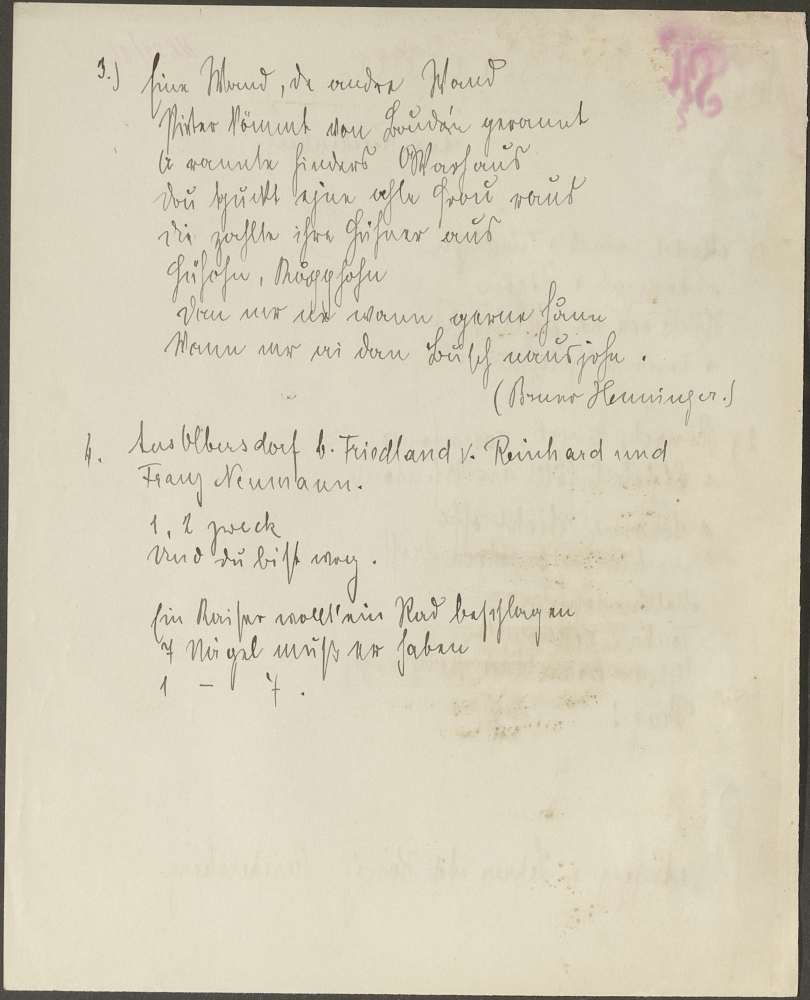 3.) Eine Wand, de andre Wand
Pieter kömmt von Boudán gerannt
A rannte hinders Warhaus
Dou guckt eine ahle Frou raus
Die zahlte ihre Hühner aus
Huhohn, Rupphohn
Dan mr wann gerne hann
Wann mr ai dan Busch nausjohn.
(Bruno Henninger.)
4. Aus Olbersdorf b. Friedland v. Reinhard und
Franz Neumann.
1, 2 zweck
Und du bist weg.
Ein Kaiser wollt' ein Rad beschlagen
7 Nägel muß er haben
1 – 7.